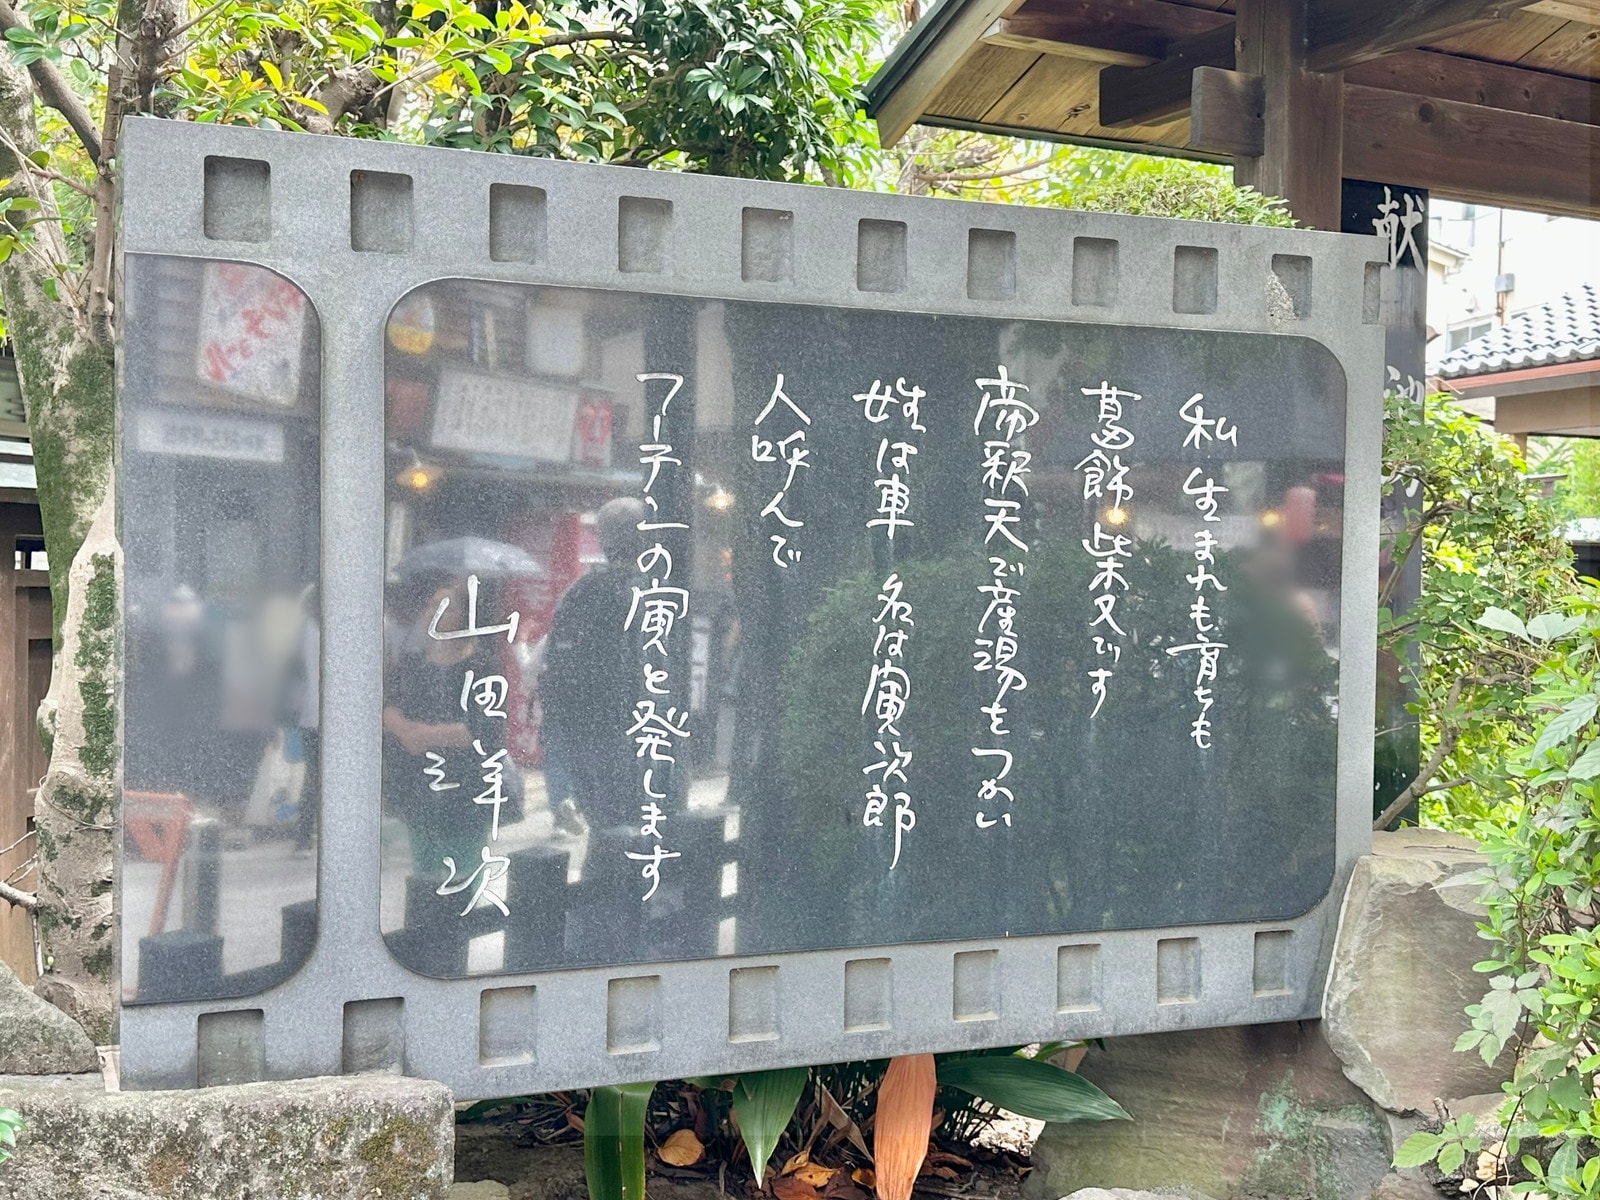 私生まれも育ちも
葛飾柴又です
帝釈天で産湯をつかい
姓は車　名は寅次郎
人呼んで
フーテンの寅と発します
山田洋次
献